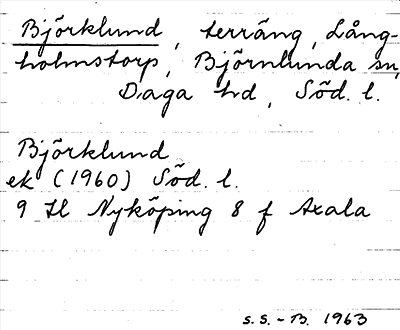 Björklund, terräng, Lång-
holmstorp, Björnlunda sn,
Daga hd, Söd. l.
Björklund
ek (1960) Söd. l.
9 H Nyköping 8 f Axala
S.S.-B. 1963